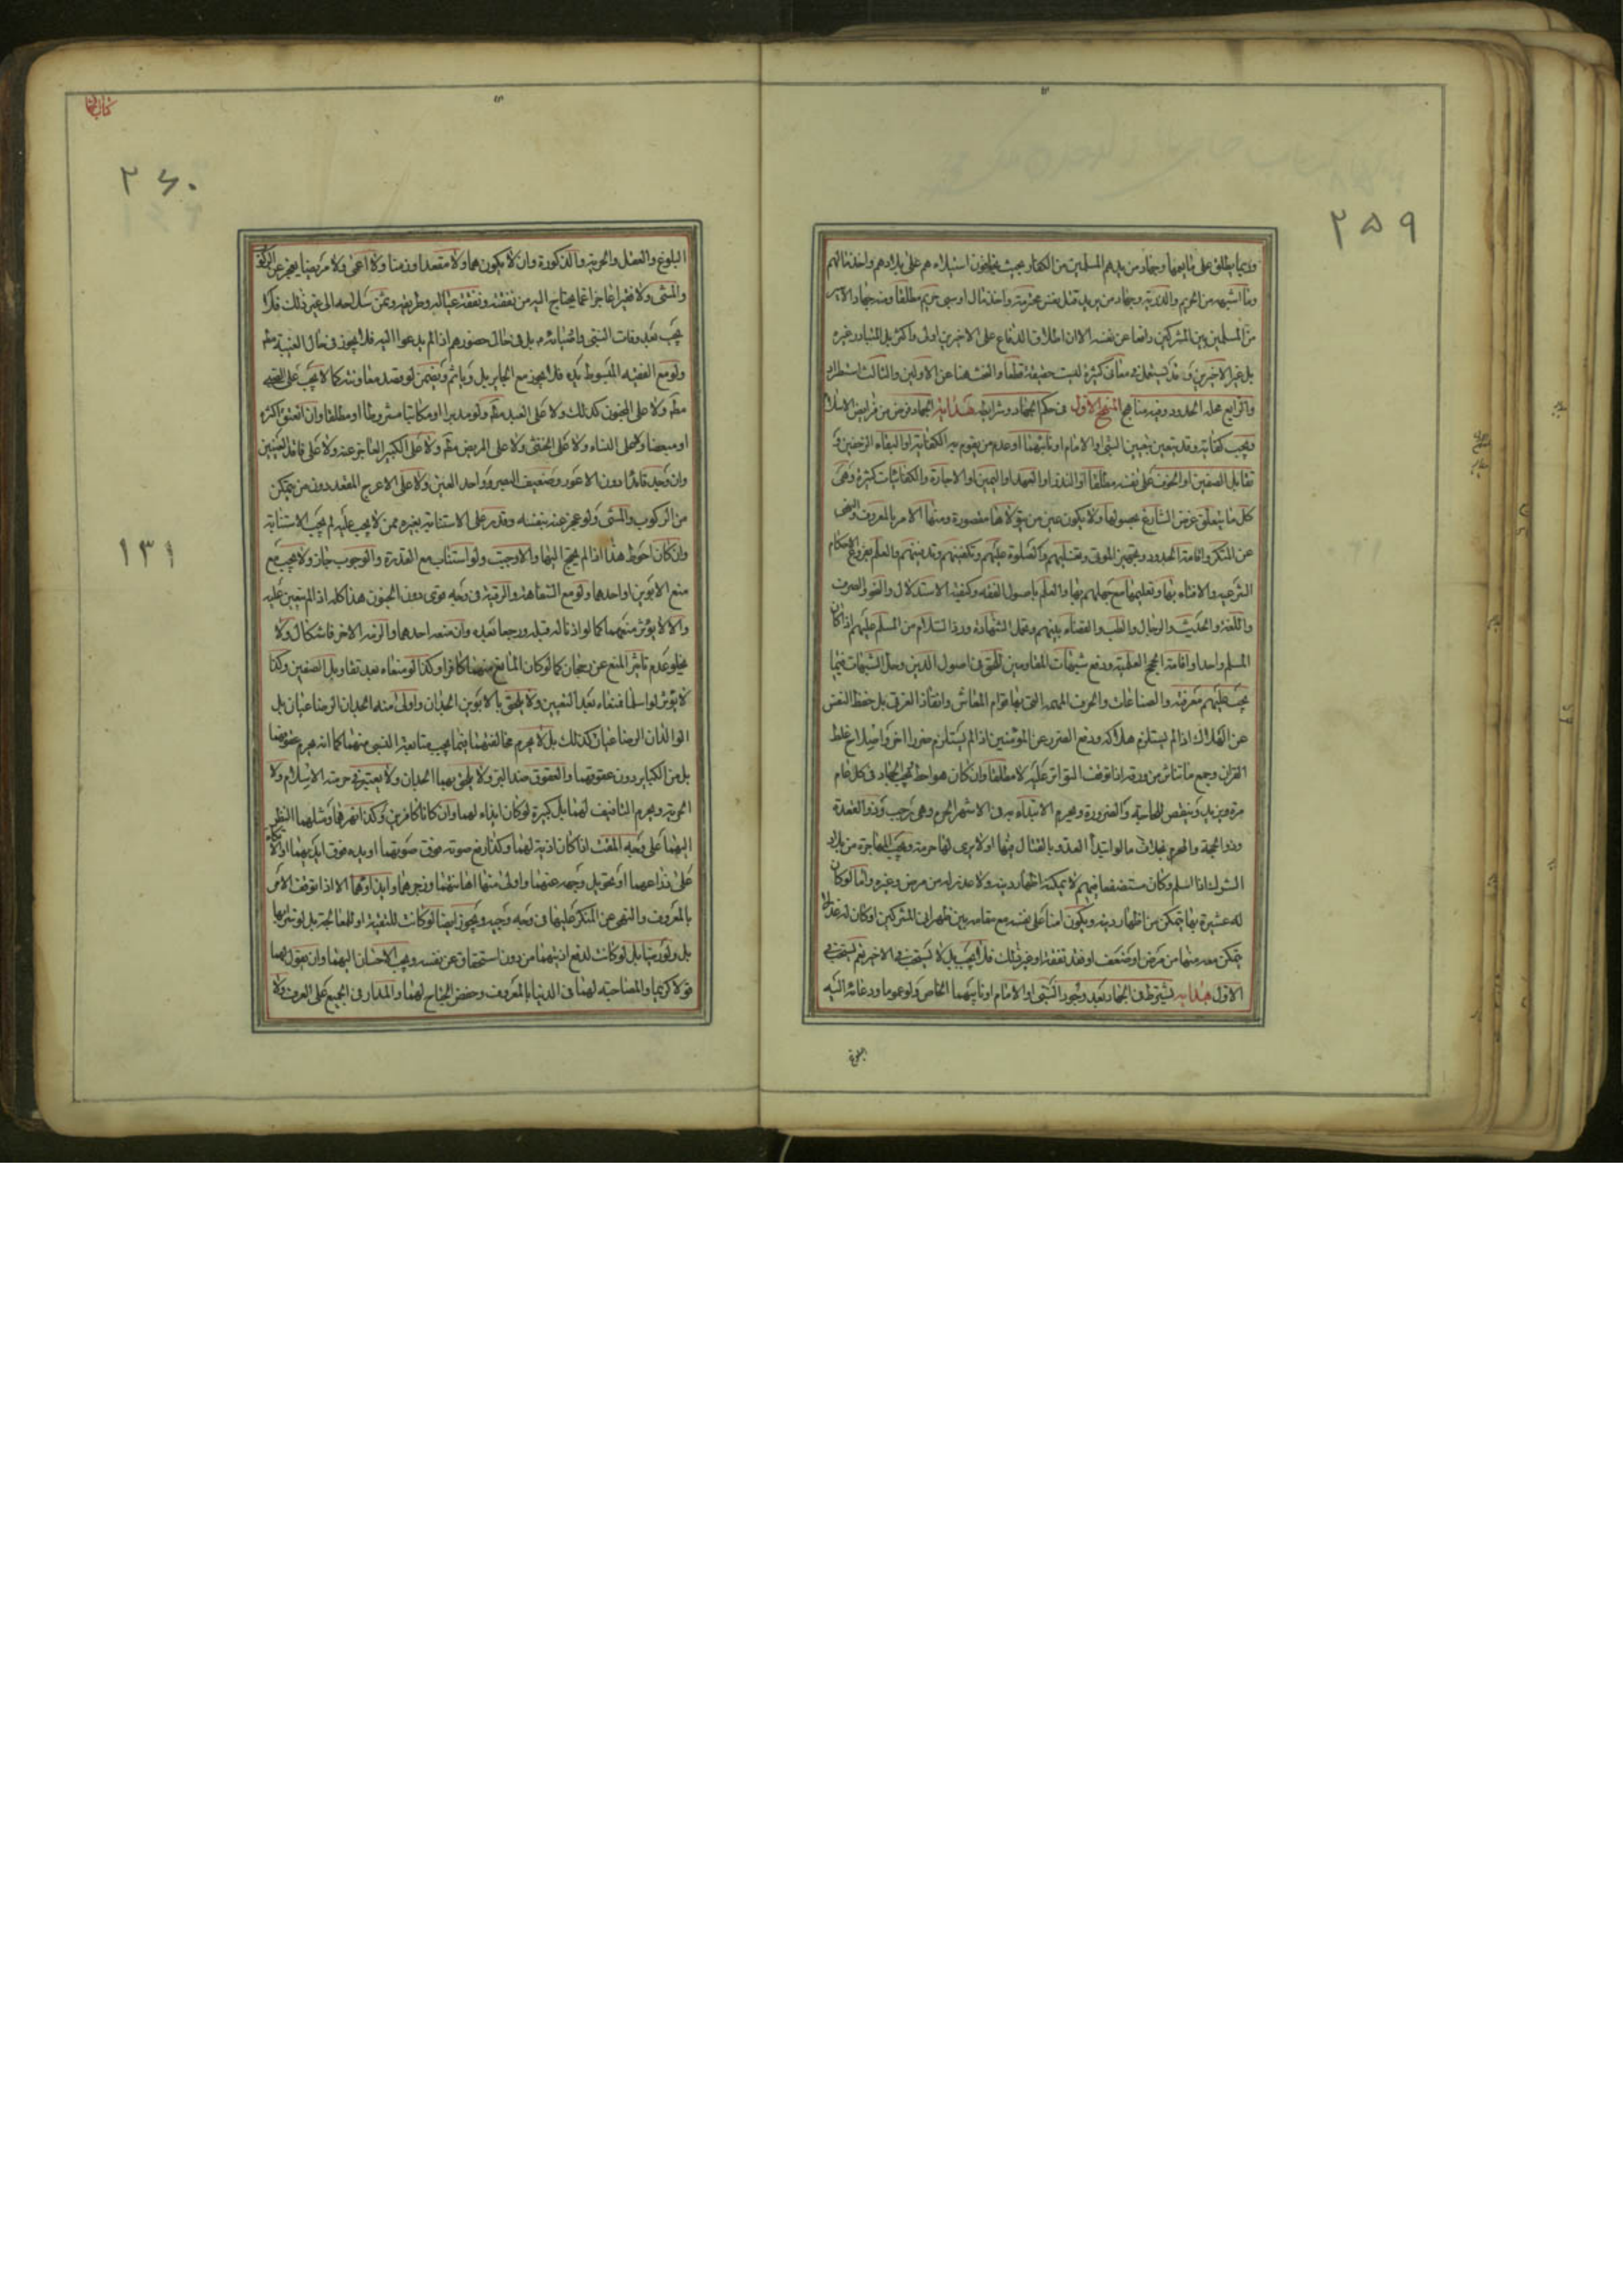 ٢٥٩
وربما يطلق على ما يعمها وجهاد من يدهم المسلمين من الكفار بحيث يخافون استيلاءهم على بلادهم واخذ مالهم
وما اشبهه من الحريم والذرية وجهاد من يريد قتل نفس محرمة واخذ مال او سبي حريم مطلقا ومنه جهاد الاسير
من المسلمين بين المشركين دافعا عن نفسه الا ان اطلاق الدفاع على الاخرين اولى واكثر بل المتبادر غيره
بل غير الاخيرين وقد يستعمل في معان كثيرة ليست حقيقة قطعا والبحث هنا عن الاولين والثالث استطراد
والرابع محله الحدود وفيه مناهج المنهج الاول في حكم الجهاد وشرايطه هداية الجهاد فرض من فرايض الاسلام
ويجب كفاية وقد يتعين بتعيين النبي او الامام او نائبهما او عدم من يقوم به الكفاية او التقاء الزحفين و
تقابل الصفين او الخوف على نفسه مطلقا او النذر او العهد او اليمين او الاجارة والكفائيات كثيرة وهي
كل ما يتعلق غرض الشارع بحصولها ولا يكون عين من يتولاها مقصورة ومنها الامر بالمعروف والنهي
عن المنكر واقامة الحدود وتجهيز الموتى وتغسيلهم والصلوة عليهم وتكفينهم وتدفينهم والعلم بفروع الاحكام
الشرعية والافتاء بها وتعليمها مع جهلهم بها والعلم باصول الفقه وكيفية الاستدلال والنحو والصرف
واللغة والحديث والرجال والطب والقضاء بينهم وتحمل الشهادة ورد السلام من المسلم عليهم اذا كان
المسلم واحدا واقامة الحجج العلمية ودفع شبهات المقاومين للحق في اصول الدين وحل الشبهات فيما
يجب عليهم معرفته والصناعات والحرف المهمة التي بها قوام المعاش وانقاذ الغرقى بل حفظ النفس
عن الهلاك اذا لم يستلزم هلاكه ودفع الضرر عن المؤمنين اذا لم يستلزم ضررا اخر واصلاح غلط
القران وجمع ما تناثر من ورقه اذا توقف التواتر عليه لا مطلقا وان كان هو احوط يجب الجهاد في كل عام
مرة ويزيد وينقص للحاجة والضرورة ويحرم الابتداء به في الاشهر الحرم وهي رجب وذو القعدة
وذو الحجة والمحرم بخلاف ما لو ابتدأ العدو بالقتال فيها او لا يرى لها حرمة ويجب المهاجرة من بلاد
الشرك اذا اسلم وكان مستضعفا فيهم لا يمكنه اظهار دينه ولا عذر له من مرض وغيره واما لو كان
له عشيرة بها يتمكن من اظهار دينه ويكون امنا على نفسه مع مقامه بين ظهراني المشركين او كان له عذر لا
يتمكن معه منها من مرض او ضعف او فقد نفقة او غير ذلك فلا يجب بل لا يستحب في الاخير نعم يستحب في
الاول هداية يشترط في الجهاد بعد وجود النبي او الامام او نائبهما الخاص ولو عموما ودعائه اليه
البلوغ
٢٦٠
١٣١
البلوغ والعقل والحرية والذكورة وان لا يكون هما ولا مقعدا وزمنا ولا اعمى ولا مريضا يعجز عن الركوب
والمشي ولا فقيرا عاجزا عما يحتاج اليه من نفقته ونفقة عياله وطريقه وثمن سلاحه الى غير ذلك فلا
يجب بعد وفات النبي واوصيائه بل في حال حضورهم اذا لم يدعوا اليه فلا يجوز في حال الغيبة مطم
ولو مع الفقيه المبسوط يده فلا يجوز مع الجاير بل وياثم ويضمن لو قصد معاونته كما لا يجب على الصبي
مطم ولا على المجنون كذلك ولا على العبد مطم ولو مدبرا او مكاتبا مشروطا او مطلقا وان انعتق اكثره
او مبعضا ولا على النساء ولا على الخنثى ولا على المريض مطم ولا على الكبير العاجز عنه ولا على فاقد العينين
وان وجد قائدا دون الاعور وضعيف البصر وواحد العين ولا على الاعرج المقعد دون من يتمكن
من الركوب والمشي ولو عجز عنه بنفسه وقدر على الاستنابة بغيره ممن لا يجب عليه لم يجب الاستنابة
وان كان احوط هذا اذا لم يحتج اليها والا وجبت ولو استناب مع القدرة والوجوب جاز ولا يجب مع
منع الابوين او احدهما ولو مع السفاهة والرقية في وجه قوي دون الجنون هذا كله اذا لم يتعين عليه
والا لا يؤثر منعهما كما لو اذنا له قبله ورجعا بعده وان منعه احدهما والزمه الاخر فاشكال ولا
يخلو عدم تاثير المنع عن رجحان كما لو كان المانع منهما كافرا وكذا لو منعاه بعد تقابل الصفين وكذا
لا يؤثر لو اسلما فمنعاه بعد التعيين ولا يلحق بالابوين الجدان واولى منه الجدان الرضاعيان بل
الوالدان الرضاعيان كذلك بل لا يحرم مخالفتهما فيما يجب متابعة النسبي منهما كما انه يحرم عقوقهما
بل من الكباير دون عقوقهما والعقوق ضد البر ولا يلحق بهما الجدان ولا يعتبر في حرمته الاسلام ولا
الحرية ويحرم التافيف لهما بل كبيرة لو كان ايذاء لهما وان كانا كافرين وكذا نهرهما ومثلهما النظر
اليهما على وجه المقت اذا كان اذية لهما وكذا رفع صوته فوق صوتهما او يده فوق ايديهما او الاتكاء
على ذراعهما او تحويل وجهه عنهما واولى منها اهانتهما وزجرهما وايذاؤهما الا اذا توقف الامر
بالمعروف والنهي عن المنكر عليها في وجه وجيه ويجوز ايضا لو كانت للتقية او للمعالجة بل لو تترسا بها
بل ولو ربتا بل لو كانت لدفع اذيتهما من دون استحقاق عن نفسه ويجب الاحسان اليهما وان يقول لهما
قولا كريما والمصاحبة لهما في الدنيا بالمعروف وخفض الجناح لهما والمدار في الجميع على العرف ولا